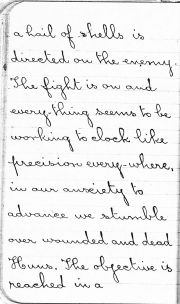 a hail of shells is
directed on the enemy.
The fight is on and
every-thing seems to be
working to clock like
precision every-where,
in our anxiety to
advance we stumble
over wounded and dead
Huns. The objective is
reached in a